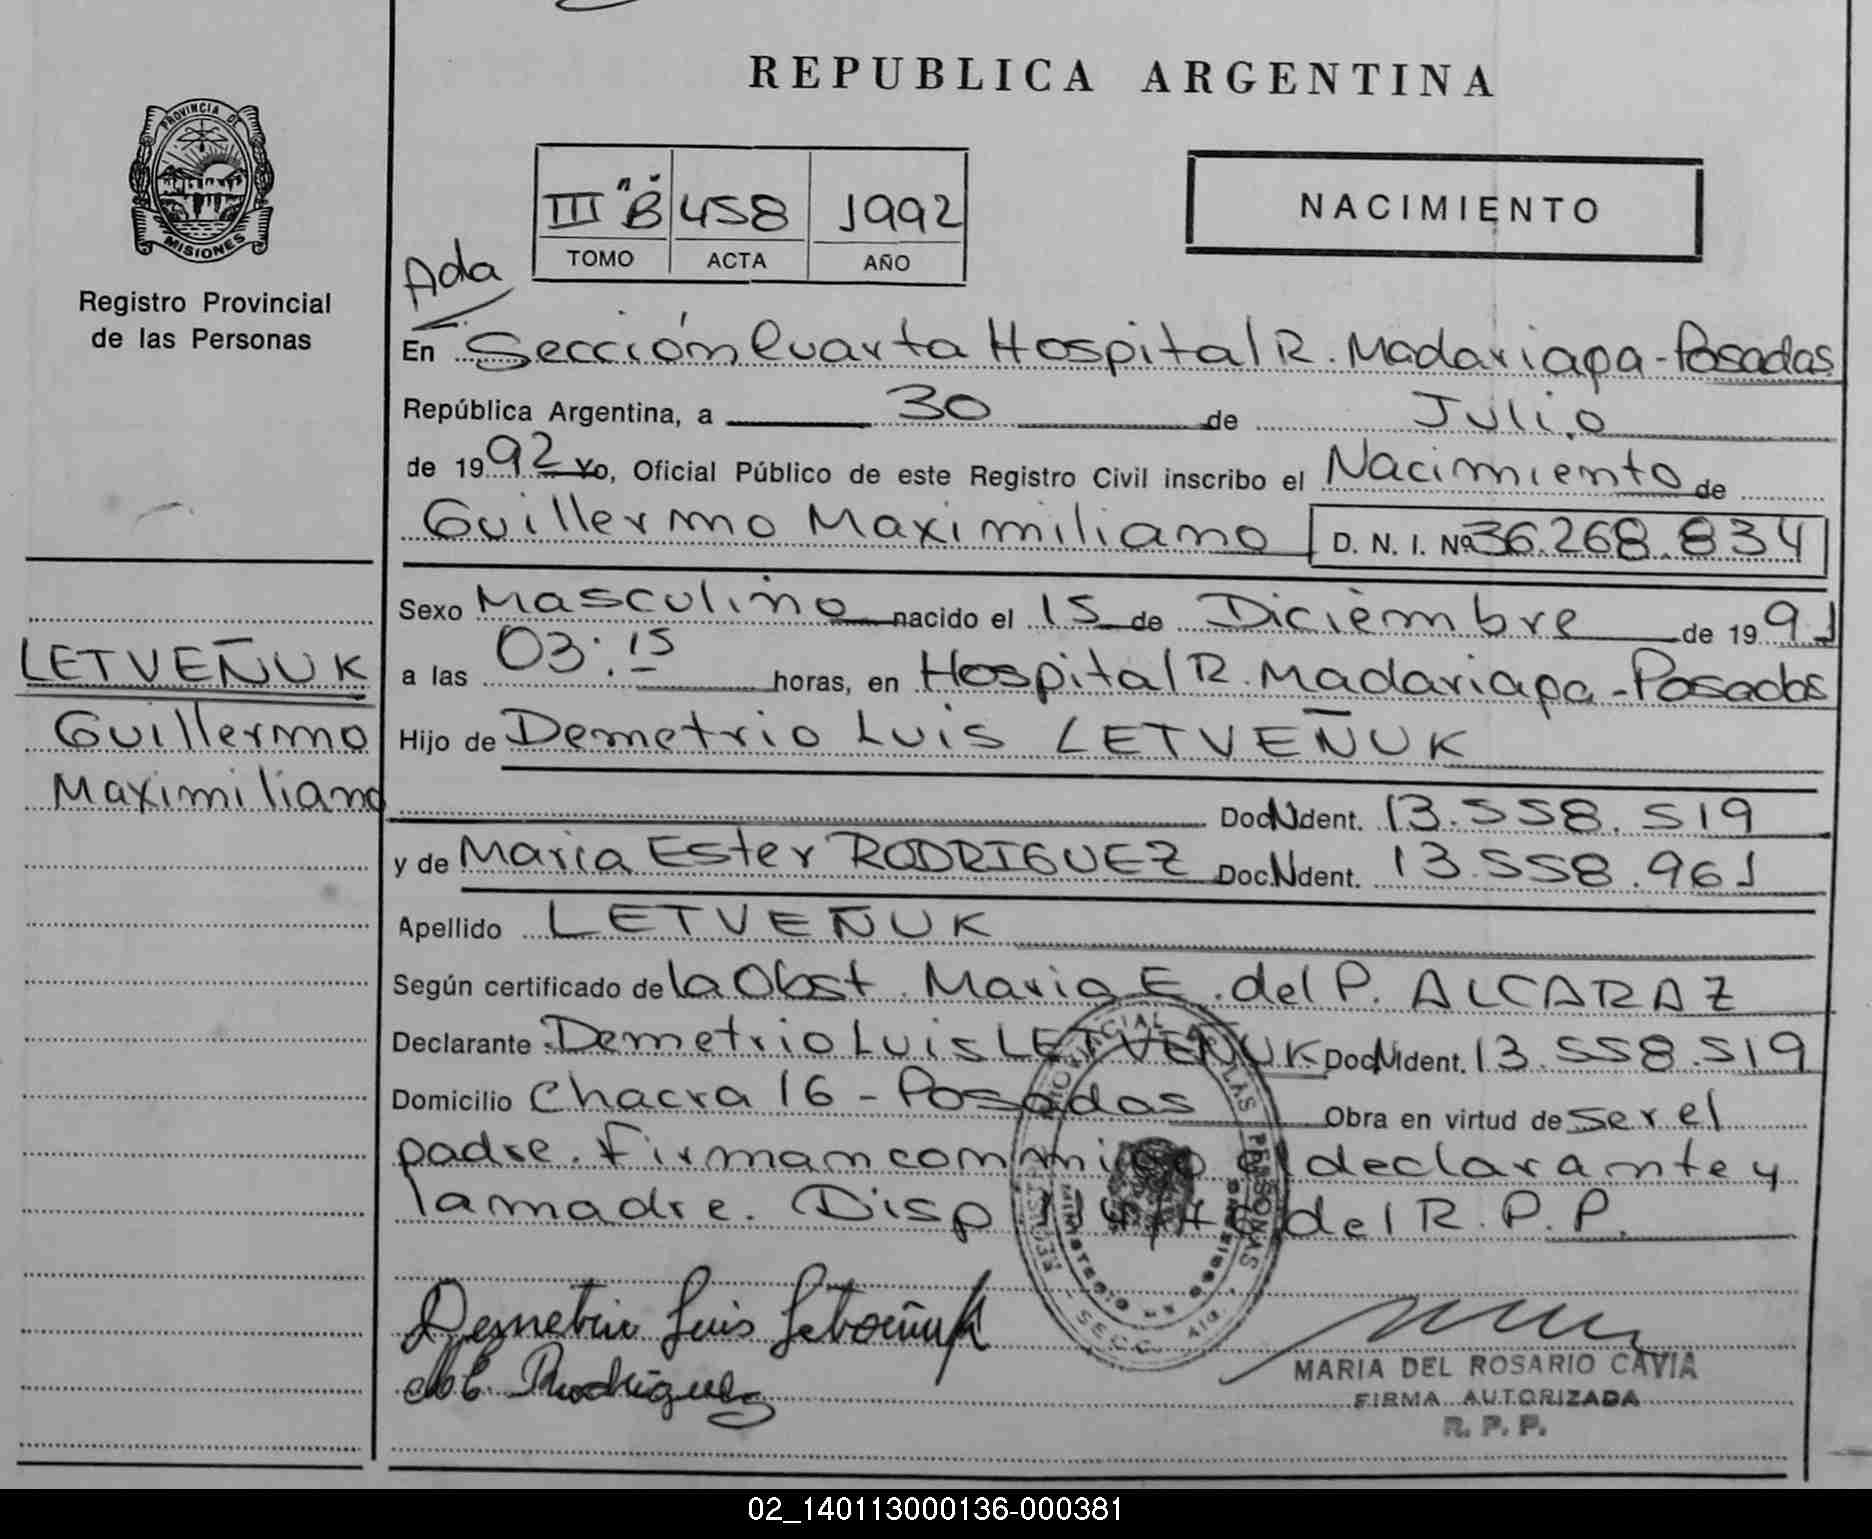 REPUBLICA ARGENTINA
PROVINCIA DE
MISIONES
Registro Provincial
de las Personas
III "B" 458 1992
TOMO ACTA AÑO
NACIMIENTO
Ada
En Sección Cuarta Hospital R. Madariaga - Posadas
República Argentina, a 30 de Julio
de 1992 Yo, Oficial Público de este Registro Civil inscribo el Nacimiento de
Guillermo Maximiliano D. N. I. Nº 36.268.834
Sexo Masculino nacido el 15 de Diciembre de 1991
a las 03:15 horas, en Hospital R. Madariaga - Posadas
Hijo de Demetrio Luis LETVEÑUK
Doc. Ident. 13.558.519
y de María Ester RODRIGUEZ Doc. Ident. 13.558.961
Apellido LETVEÑUK
Según certificado de la Obst. Maria E. del P. ALCARAZ
Declarante Demetrio Luis LETVEÑUK Doc. Ident. 13.558.519
Domicilio Chacra 16 - Posadas Obra en virtud de ser el
padre. Firman conmigo el declarante y
la madre. Disp del R. P. P.
LETVEÑUK
Guillermo
Maximiliano
Demetrio Luis Letveñuk
M E. Rodriguez
MARIA DEL ROSARIO CAVIA
FIRMA AUTORIZADA
R. P. P.
02_140113000136-000381